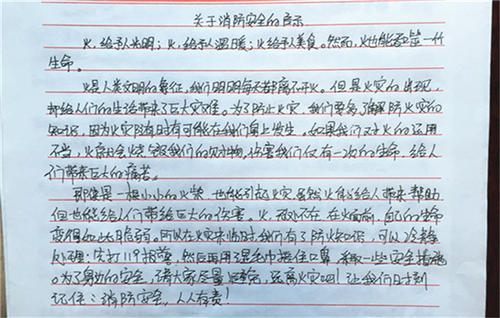 关于消防安全的启示
火,给予人光明;火,给予人温暖;火给予人美食。然而,火也能和毁一什
生命。
火是人类文明的象征,我们明明每天都离不开火。但是火灾的出现,
却给人们的生活带来了巨大灾难。为了防止火灾,我们要多了解防火灾的
知识,因为火灾随时有可能在我们身上发生。如果我们对火的运用
不当,火就会烧毁我们的财物,伤害我们仅有一次的生命,给人
们带来巨大的痛苦。
那怕是一根小小的火柴,也能引起火灾,虽然火能给人带来帮助
但也能给人们带给巨大的伤害。火,无处不在,在火面前,自己的生命
变得如此脆弱。所以在火灾来临时,我们有了防火知识,可以冷静
处理:先打119报警,然后再用湿毛巾捂住口鼻,采取一些安全措施
。为了身边的安全,请大家尽量远离,远离火灾吧!让我们时刻
记住:消防安全,人人有责!